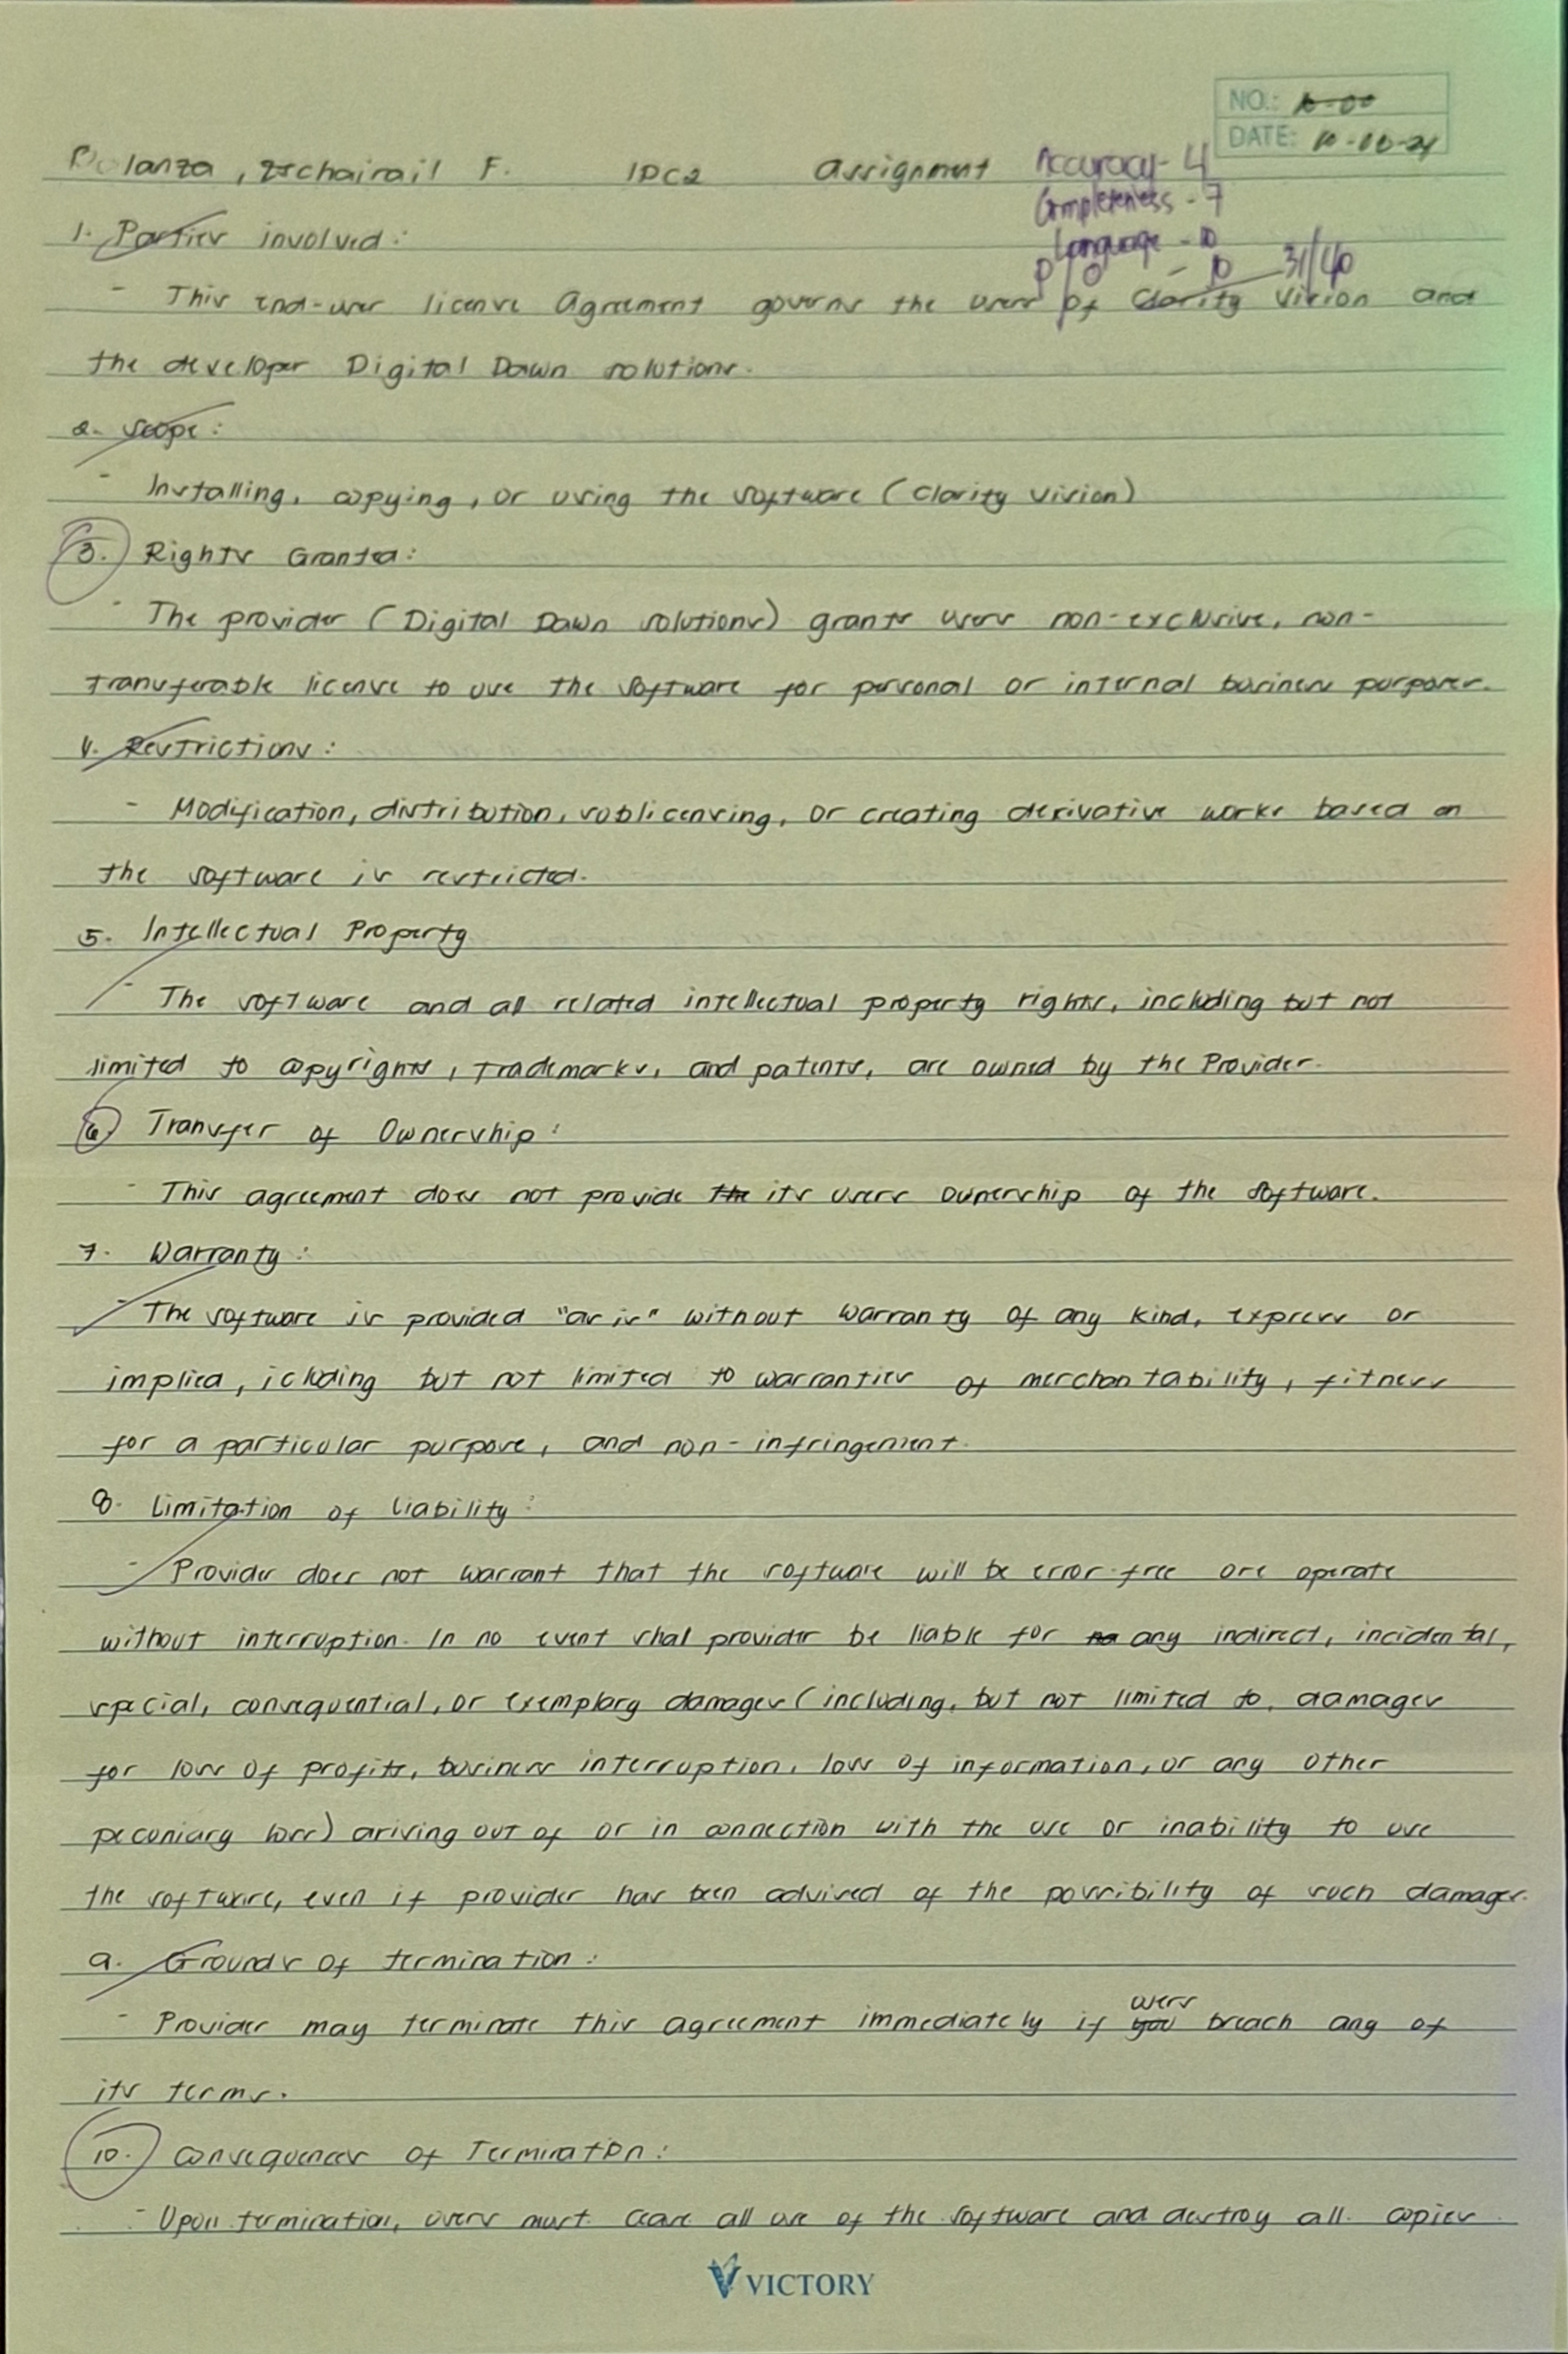 NO.: 10-00
DATE: 10-00-24
F. 1DC2 Assignment
Accuracy - 4
Completeness - 7
Language - 10
P/O - 10 31/40
1. Parties involved:
- This end-user license Agreement governs the users of Clarity Vision and
the developer Digital Dawn solutions.
2. Scope:
- Installing, copying, or using the software (Clarity Vision)
3. Rights Granted:
- The provider (Digital Dawn solutions) grants users non-exclusive, non-
transferable license to use the software for personal or internal business purposes.
4. Restrictions:
- Modification, distribution, sublicensing, or creating derivative works based on
the software is restricted.
5. Intellectual Property
- The software and all related intellectual property rights, including but not
limited to copyrights, trademarks, and patents, are owned by the Provider.
6. Transfer of Ownership:
- This agreement does not provide the its users ownership of the software.
7. Warranty:
- The software is provided "as is" without warranty of any kind, express or
implied, icluding but not limited to warranties of merchantability, fitness
for a particular purpose, and non-infringement.
8. Limitation of liability:
- Provider does not warrant that the software will be error-free ore operate
without interruption. In no event shal provider be liable for any indirect, incidental,
special, consequential, or exemplary damages (including, but not limited to, damages
for loss of profits, business interruption, loss of information, or any other
pecuniary loss) arising out of or in connection with the use or inability to use
the software, even if provider has been advised of the possibility of such damages.
9. Grounds of termination:
- Provider may terminate this agreement immediately if you users breach any of
its terms.
10. Consequences of Termination:
- Upon termination, users must cease all use of the software and destroy all copies
VICTORY